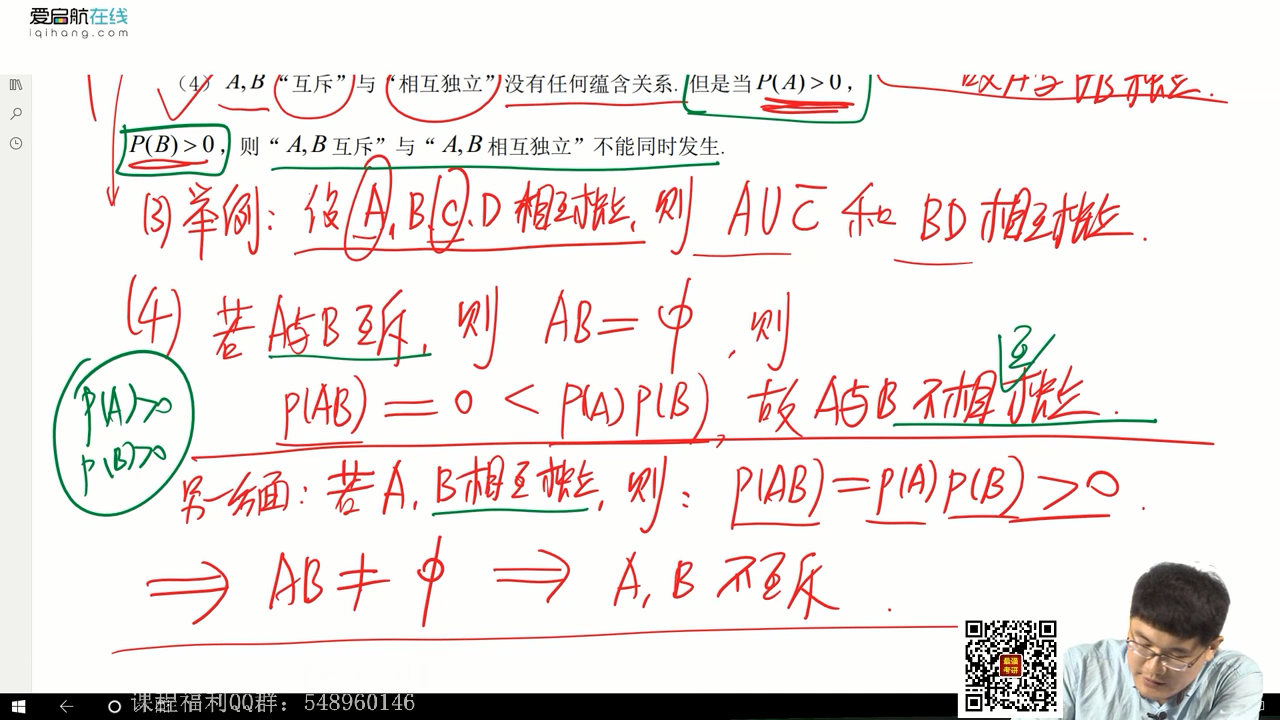 爱启航在线
iqihang.com
（4） A,B “互斥”与“相互独立”没有任何蕴含关系. 但是当P(A)>0，
故A与 独立.
P(B)>0，则“ A,B 互斥”与“ A,B 相互独立”不能同时发生.
(3) 举例：设A、B、C、D 相互独立，则 A∪C̄ 和 BD 相互独立.
(4) 若 A与B 互斥，则 AB=φ，则
互
P(A)>0
P(AB)=0<P(A)P(B)，故 A与B 不相独立.
P(B)>0
另一方面：若 A，B 相互独立，则：P(AB)=P(A)P(B)>0.
⇒ AB≠φ ⇒ A，B 不互斥.
最强
考研
课程福利QQ群：548960146